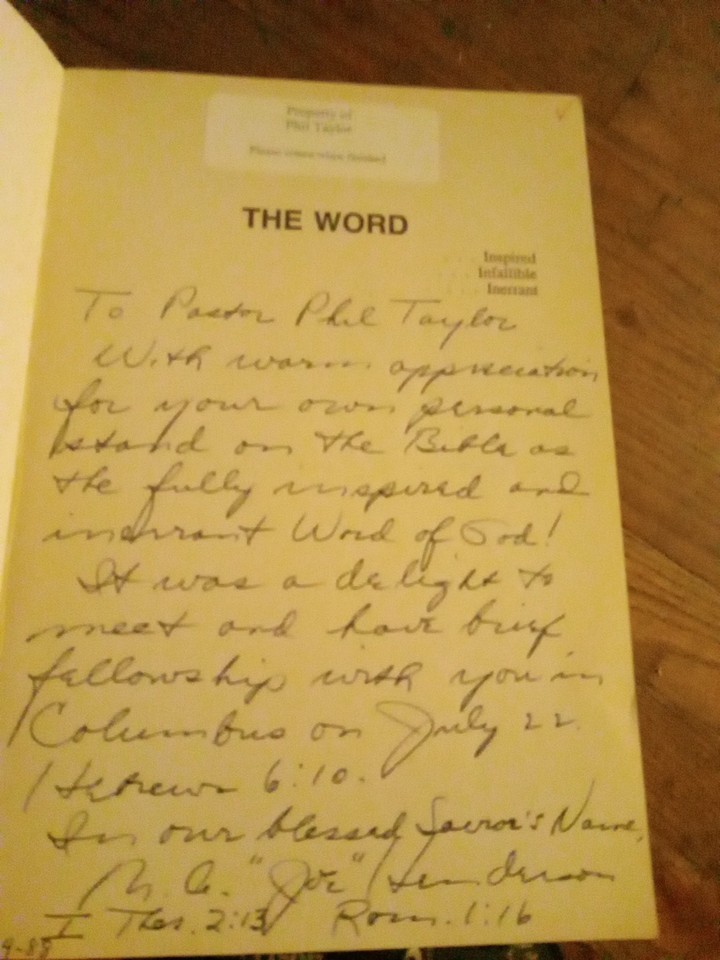 Property of
Phil Taylor
Please return when finished
THE WORD
. . . Inspired
. . . Infallible
. . . Inerrant
To Pastor Phil Taylor
With warm appreciation
for your own personal
stand on the Bible as
the fully inspired and
inerrant Word of God!
It was a delight to
meet and have brief
fellowship with you in
Columbus on July 22.
Hebrews 6:10.
In our blessed Savior's Name,
"Joe" Henderson
I Thes. 2:13 Rom. 1:16